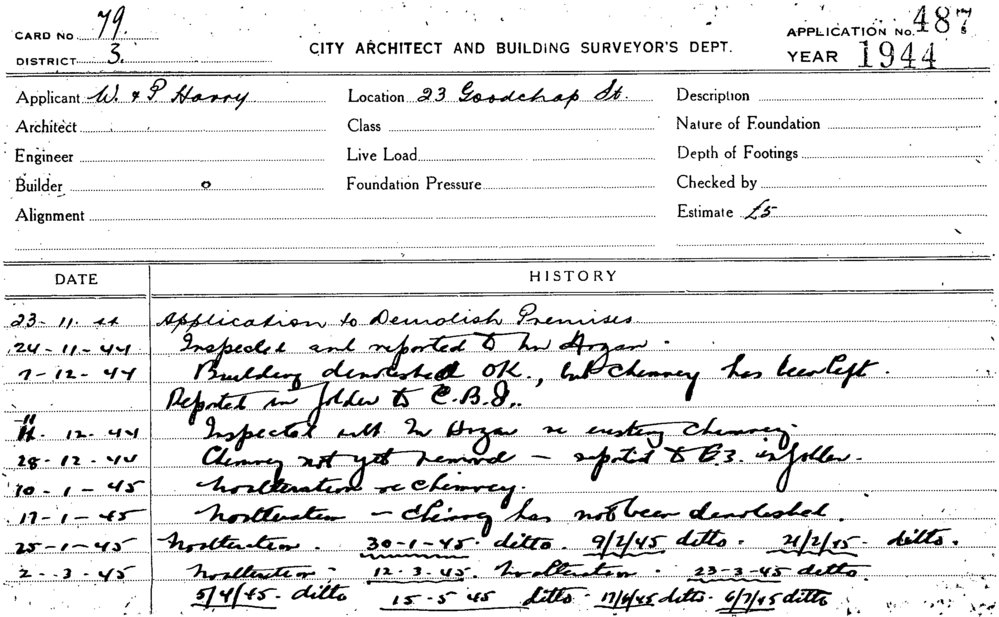 CARD No 79.
DISTRICT 3.
CITY ARCHITECT AND BUILDING SURVEYOR'S DEPT.
APPLICATION No. 487
YEAR 1944
Applicant W. & P Harry Location 23 Goodchap St. Description
Architect Class Nature of Foundation
Engineer Live Load Depth of Footings
Builder Foundation Pressure Checked by
Alignment Estimate £5
DATE HISTORY
23-11-44 Application to Demolish Premises
24-11-44 Inspected and reported to Mr Hogan.
7-12-44 Building demolished OK., but chimney has been left.
Reported in folder to C.B.I.
11. 12-44 Inspected with Mr Hogan re existing chimney.
28-12-44 Chimney not yet removed - reported to in folder.
10-1-45 No alteration re chimney.
17-1-45 No alteration - chimney has not been demolished.
25-1-45 No alteration. 30-1-45 ditto. 9/2/45 ditto. 21/2/45 ditto.
2-3-45 No alteration. 12-3-45. No alteration. 23-3-45 ditto.
5/4/45 ditto 15-5 45 ditto. 17/6/45 ditto. 6/7/45 ditto